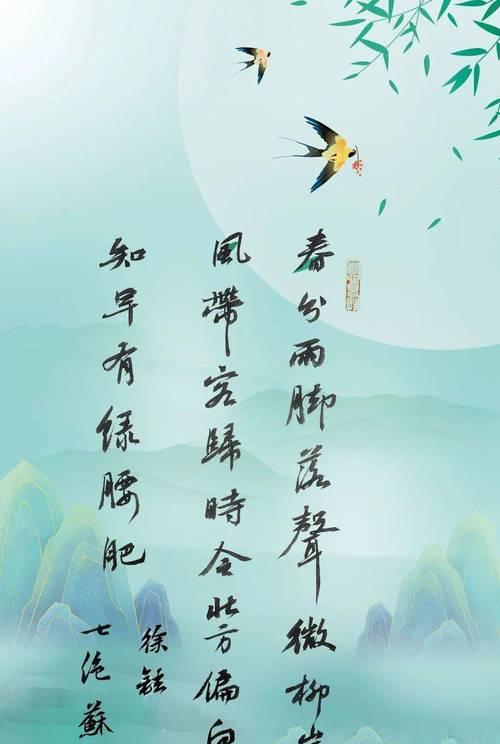 春分雨脚落聲微柳岸
風帶客歸時令北方偏向
知早有绿腰肥
徐鉉
七绝蘇